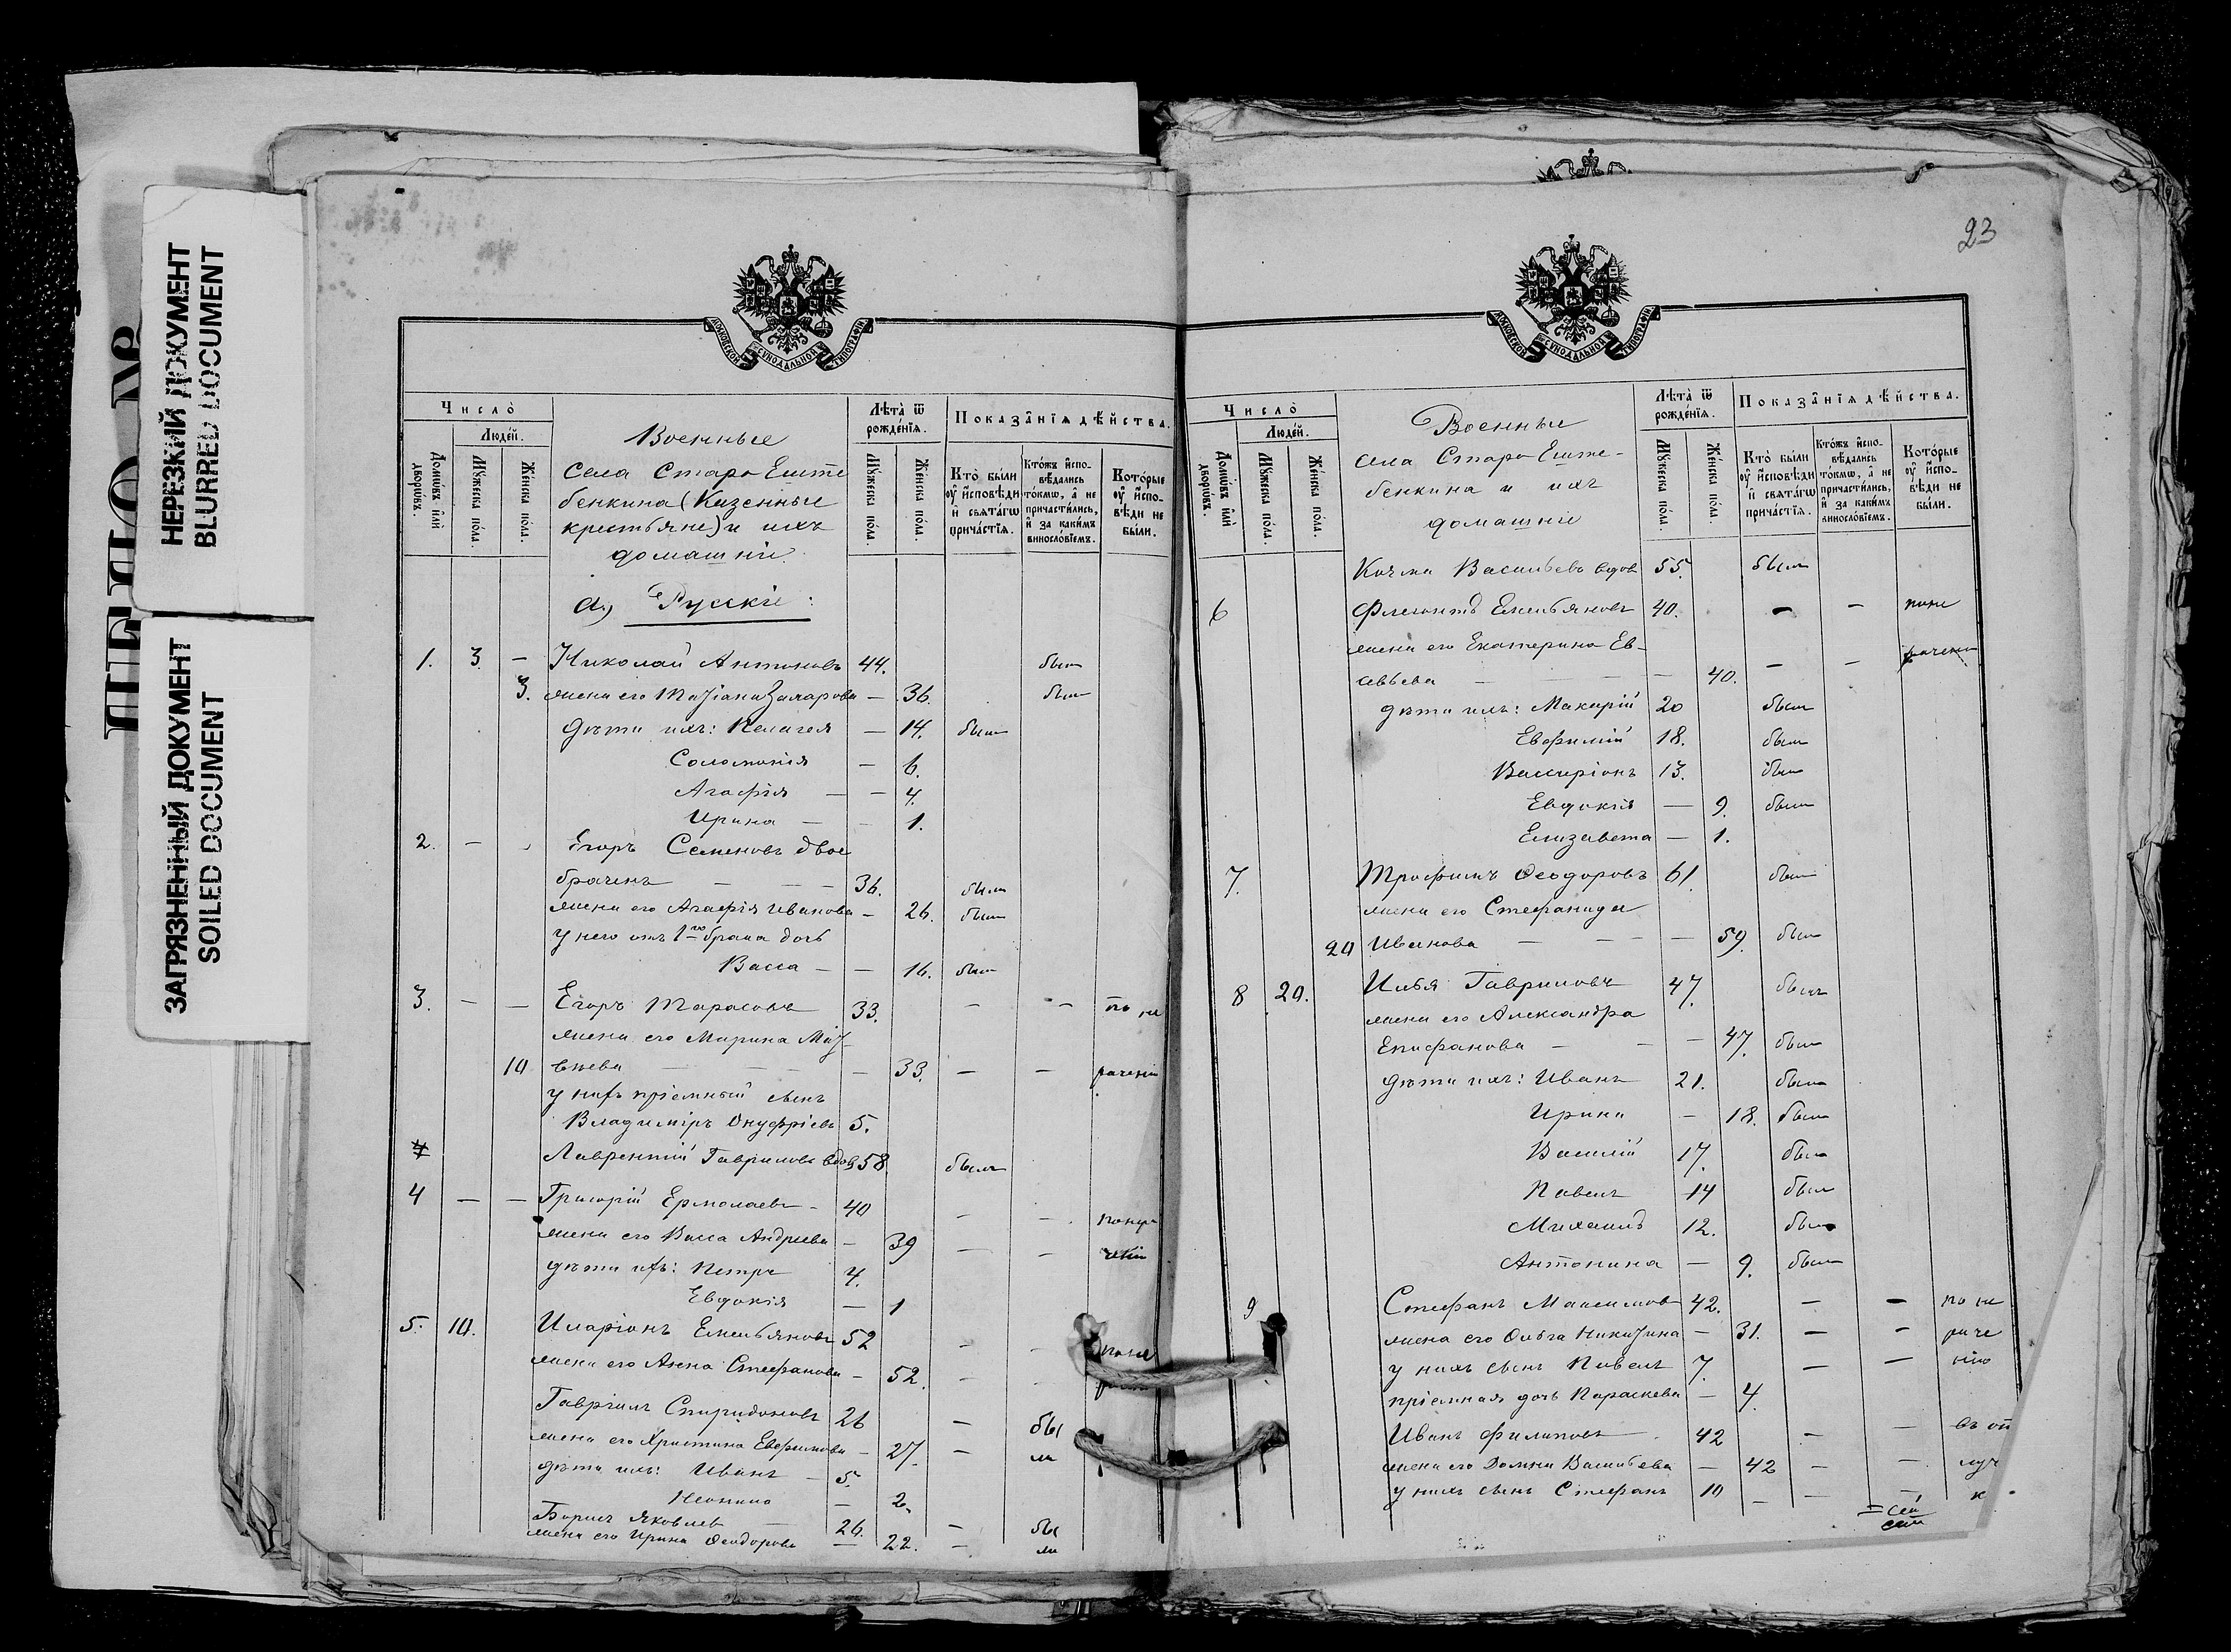 ДЕЛО №
НЕРЕЗКИЙ ДОКУМЕНТ
BLURRED DOCUMENT
ЗАГРЯЗНЕННЫЙ ДОКУМЕНТ
SOILED DOCUMENT
МОСКОВСКОЙ СѴНОДАЛЬНОЙ ТИПОГРАФІИ
Число̀
Людей.
Домѡвъ и҆лѝ дворѡвъ.
Мꙋжеска пола.
Женска пола.
Военные
села Старо Еште
бенкина (Казенные
крестьяне) и ихъ
домашніе.
Лѣта̀ ѿ рожденїѧ.
Мꙋжеска пола.
Женска пола.
Показанїѧ дѣйства.
Кто̀ были ᲂу҆ и҆сповѣди и҆ свѧтагѡ причастїѧ.
Ктожъ и҆сповѣдались токмѡ, а҆ не причастились, и҆ за какимъ винословїемъ.
Которые ᲂу҆ и҆сповѣди не были.
а, Русскіе:
1. 3. — Николай Антоновъ 44. был
3. жена его Таѳіана Захарова — 36. был
Дѣти ихъ: Пелагея — 14. был
Соломонія — 6.
Агафія — — 4.
Ирина — — 1.
2. — Егоръ Семеновъ двое
браченъ — — — 36. был
жена его Агафія Иванова — 26. был
у него отъ 1го брака дочь
Васса — — 16. был
3. — — Егоръ Тарасовъ 33. — — по не
жена его Марина Маѳ-
10 вѣева — — — 33. — — раченію
у нихъ пріемный сынъ
Владиміръ Онуфріевъ 5.
Лаврентій Гавриловъ вдов 58. былъ
4 — — Григорій Ермолаевъ — 40 — — понера
жена его Васса Андреева — 39 — — ченію
дѣти ихъ: Петръ 4.
Евдокія — 1
5. 10. Иларіонъ Емельяновъ 52 — — поне
жена его Анна Стефанова — 52. — —
Гавріилъ Спиридоновъ 26 — бы
жена его Христина Евфимова — 27. — ли
дѣти ихъ: Иванъ — 5.
— 2.
Борисъ Яковлевъ — 26. — бы
жена его Ирина Ѳеодорова — 22. — ли
23
МОСКОВСКОЙ СѴНОДАЛЬНОЙ ТИПОГРАФІИ
Число̀
Людей.
Домѡвъ и҆лѝ дворѡвъ.
Мꙋжеска пола.
Женска пола.
Военные
села Старо Еште-
бенкина и ихъ
домашніе
Лѣта̀ ѿ рожденїѧ.
Мꙋжеска пола.
Женска пола.
Показанїѧ дѣйства.
Кто̀ были ᲂу҆ и҆сповѣди и҆ свѧтагѡ причастїѧ.
Ктожъ и҆сповѣдались токмѡ, а҆ не причастились, и҆ за какимъ винословїемъ.
Которые ᲂу҆ и҆сповѣди не были.
Козма Васильевъ вдов 55. был
6 Флегонтъ Емельяновъ 40. — — поне
жена его Екатерина Ев-
— — — 40. — — рачению
дѣти ихъ: Макарій 20 был
Евфимій 18. был
Валеріонъ 13. был
Евдокія — 9. был
Елизавета — 1.
7. Трофимъ Ѳеодоровъ 61. был
жена его Стефанида
20 Иванова — — — — 59. был
8 20. Илья Гавриловъ 47. былъ
жена его Александра
Епифанова — — — 47. был
дѣти ихъ: Иванъ 21. был
Ирина — 18. был
Василій 17. был
Павелъ 14 был
Михаилъ 12. был
Антонина — 9. был
9 Стефанъ Максимов 42. — — по не
жена его Ольга Никиѳина — 31. — — раче
у нихъ сынъ Павелъ 7. — — нію
пріемная дочь Параскева — 4.
Иванъ Филиповъ 42 — — въ от
жена его Домна Васильева — 42 — — луч
у нихъ сынъ Стефанъ 10 — — — к